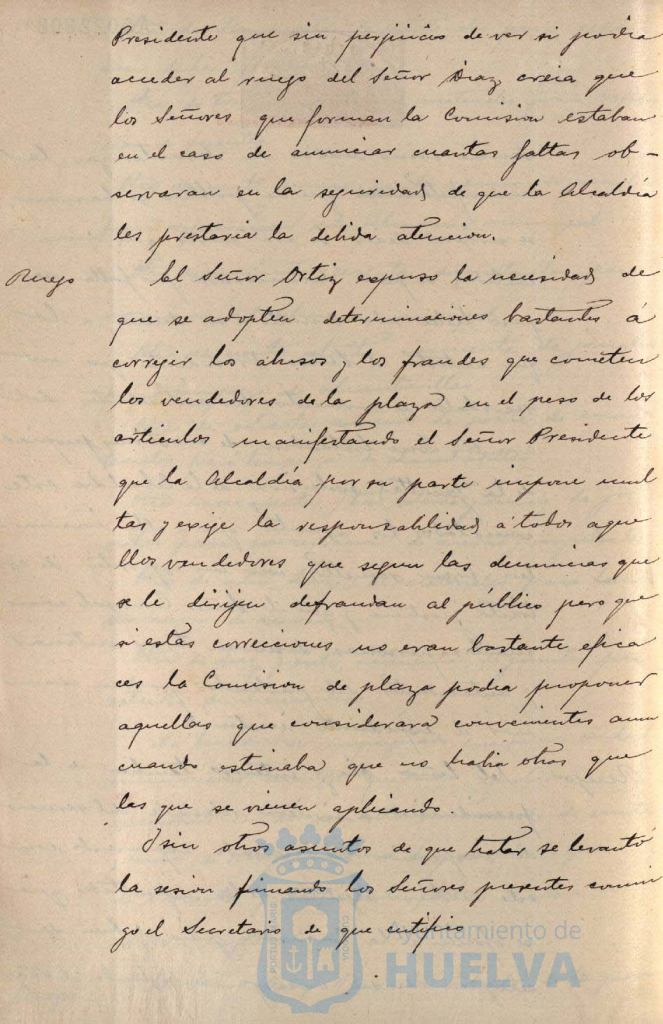 Presidente que sin perjuicio de ver si podia
acceder al ruego del Señor Diaz creia que
los Señores que forman la Comision estaban
en el caso de anunciar cuantas faltas ob-
servaran en la seguridad de que la Alcaldía
les prestaria la debida atencion.
Ruego
El Señor Ortiz expuso la necesidad de
que se adopten determinaciones bastantes á
corregir los abusos y los fraudes que cometen
los vendedores de la plaza en el peso de los
articulos manifestando el Señor Presidente
que la Alcaldía por su parte impone mul
tas y exige la responsablidad á todos aque
llos vendedores que segun las denuncias que
se le dirijen defraudan al público pero que
si estas correcciones no eran bastante efica
ces la Comision de plaza podia proponer
aquellas que considerara convenientes aun
cuando estimaba que no habia otras que
las que se vienen aplicando.
Y sin otros asuntos de que tratar se levantó
la sesion firmando los Señores presentes conmi
go el Secretario de que certifico
Ayuntamiento de
HUELVA